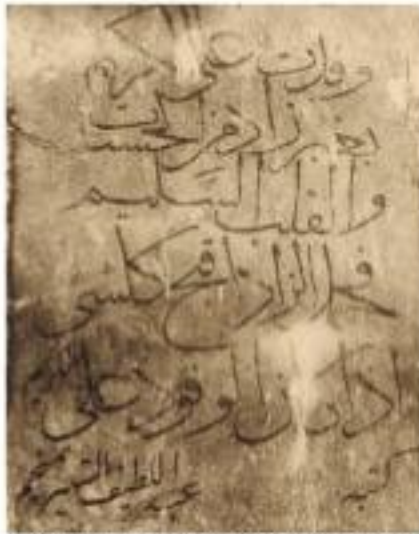 وفدت على الكريم
بغير زاد من الحسنات
والقلب السليم
فحمل الزاد اقبح كلشي
اذا كان الوفود على الكريم
كتبه عبد اللطيف الشهير